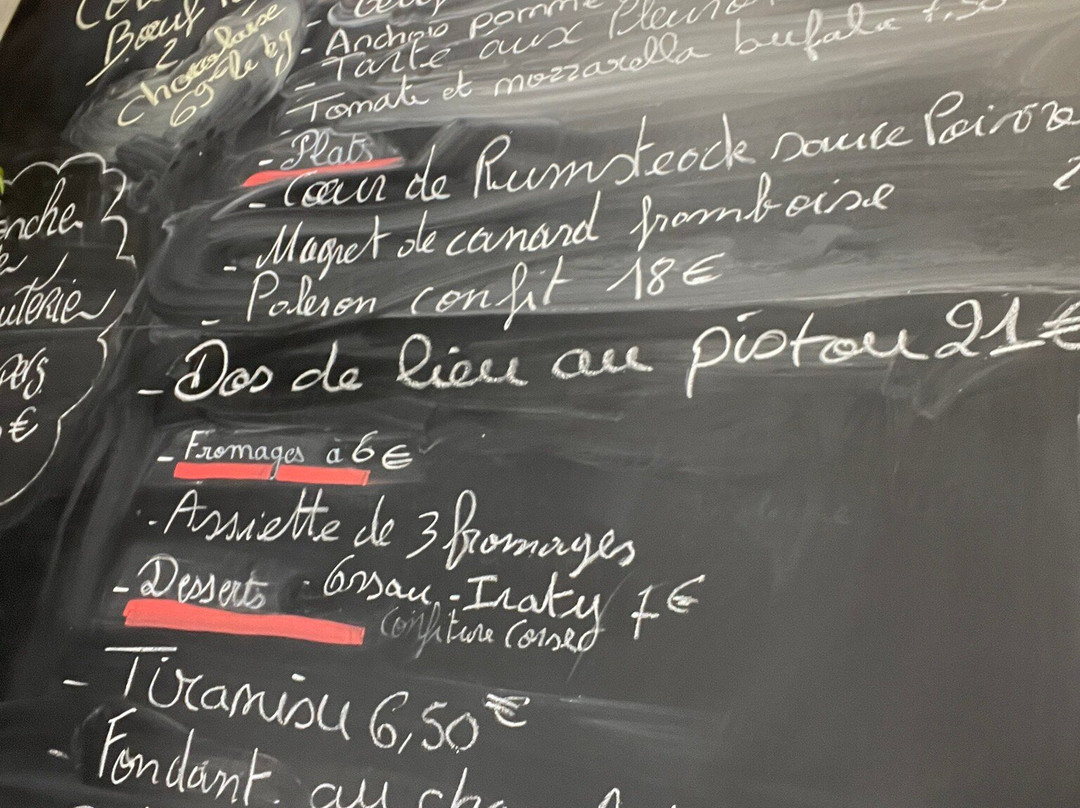 Bœuf
2
chocolaise
69 le kg
- Anchois pomme
- Tarte aux Pleuro
- Tomate et mozzarella bufala 7,50
- Plats
- Cœur de Rumsteack sauce Poivre
- Magret de canard framboise
- Paleron confit 18€
- Dos de lieu au pistou 21€
- Fromages à 6€
- Assiette de 3 fromages
- Desserts
- Ossau-Iraty 7€
confiture
- Tiramisu 6,50€
- Fondant au
anche
uterie
pers
€